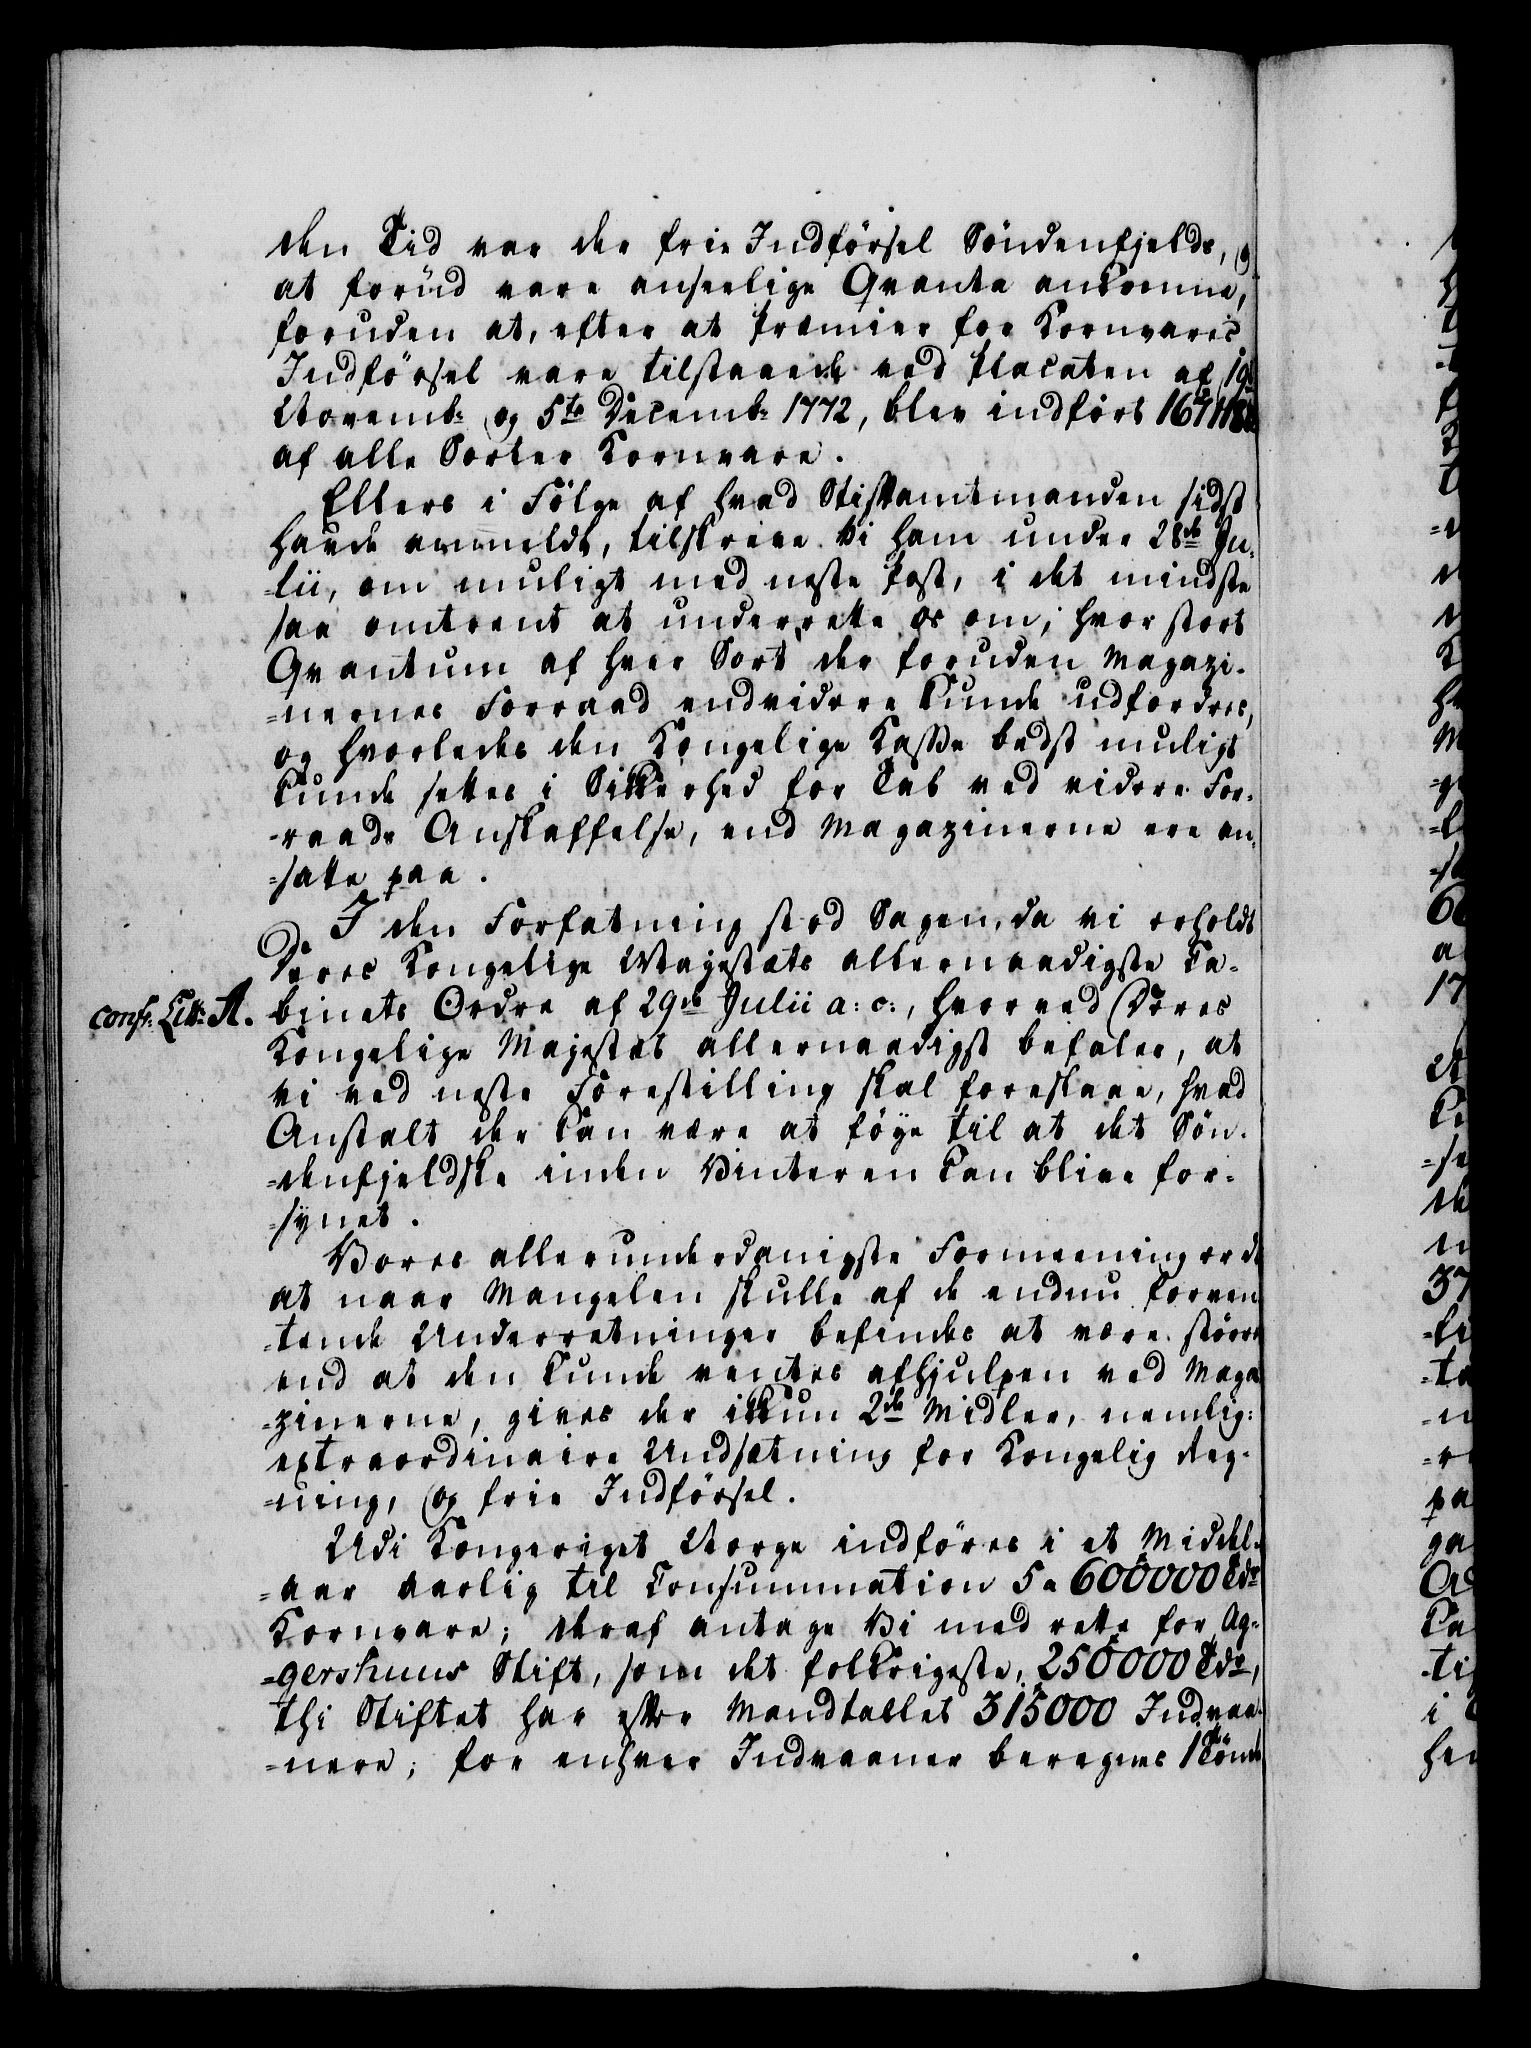 den Tid var der frie Indförsel Söndenfjelds, og
at forud vare anseelige Qvanta ankomne,
foruden at, efter at Præmier for Kornvares
Indförsel vare tilstaaede ved Placaten af 19de
Novemb: og 5te Decemb: 1772, blev indfört
af alle Sorter Kornvare.
Ellers i Fölge af hvad Stiftamtmanden sidst
havde anmeldt, tilskreve Vi ham under 28de Ju-
-lii, om muligt med neste Post, i det mindste
saa omtrent at underrette os om, hvor stort
Qvantum af hver Sort der foruden Magazi-
-nernes Forraad endvidere kunde udfordres,
og hvorledes den Kongelige Kasse bedst muligt
kunde settes i Sikkerhed for Tab ved videre For-
-raads Anskaffelse, end Magazinerne ere an-
-satte paa.
I den Forfatning stod Sagen, da vi erholdt
Deres Kongelige Majestæts allernaadigste Ca-
confr: Litr: A. binets Ordre af 29de Julii a: c:, hvorved Deres
Kongelige Majestæt allernaadigst befaler, at
vi ved neste Forestilling skal foreslaae, hvad
Anstalt der kan være at föye til at det Sön-
-denfjeldske inden Vinteren kan blive for-
-synet.
Vores allerunderdanigste Formeening er de
at naar Mangelen skulle af de endnu forven
-tende Underretninger befindes at være större
end at den kunde ventes afhjulpen ved Maga
-zinerne, gives der ikkun 2de Midler, nemlig:
extraordinaire Undsætning for Kongelig Reg-
-ning, og frie Indförsel.
Udi Kongeriget Norge indföres i et Middel-
-aar aarlig til Consummation 5 a 600000 Tdr
Kornvare; deraf antage Vi med rette for Ag-
-gershuus Stift, som det folkrigeste, 250000 Tdr,
thi Stiftet har efter Mandtallet 315000 Indvaa-
-nere; for enhver Indvaaner beregnes 1 Tönde